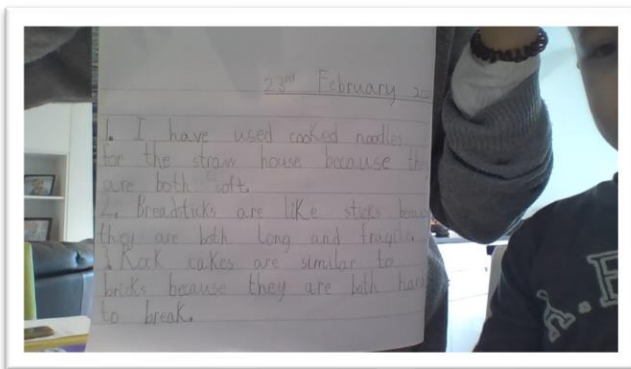 23rd February
1. I have used cooked noodles
for the straw house because
are both soft.
2. Breadsticks are like sticks
they are both long and fragile.
3. Rock cakes are similar to
bricks because they are both hard
to break.